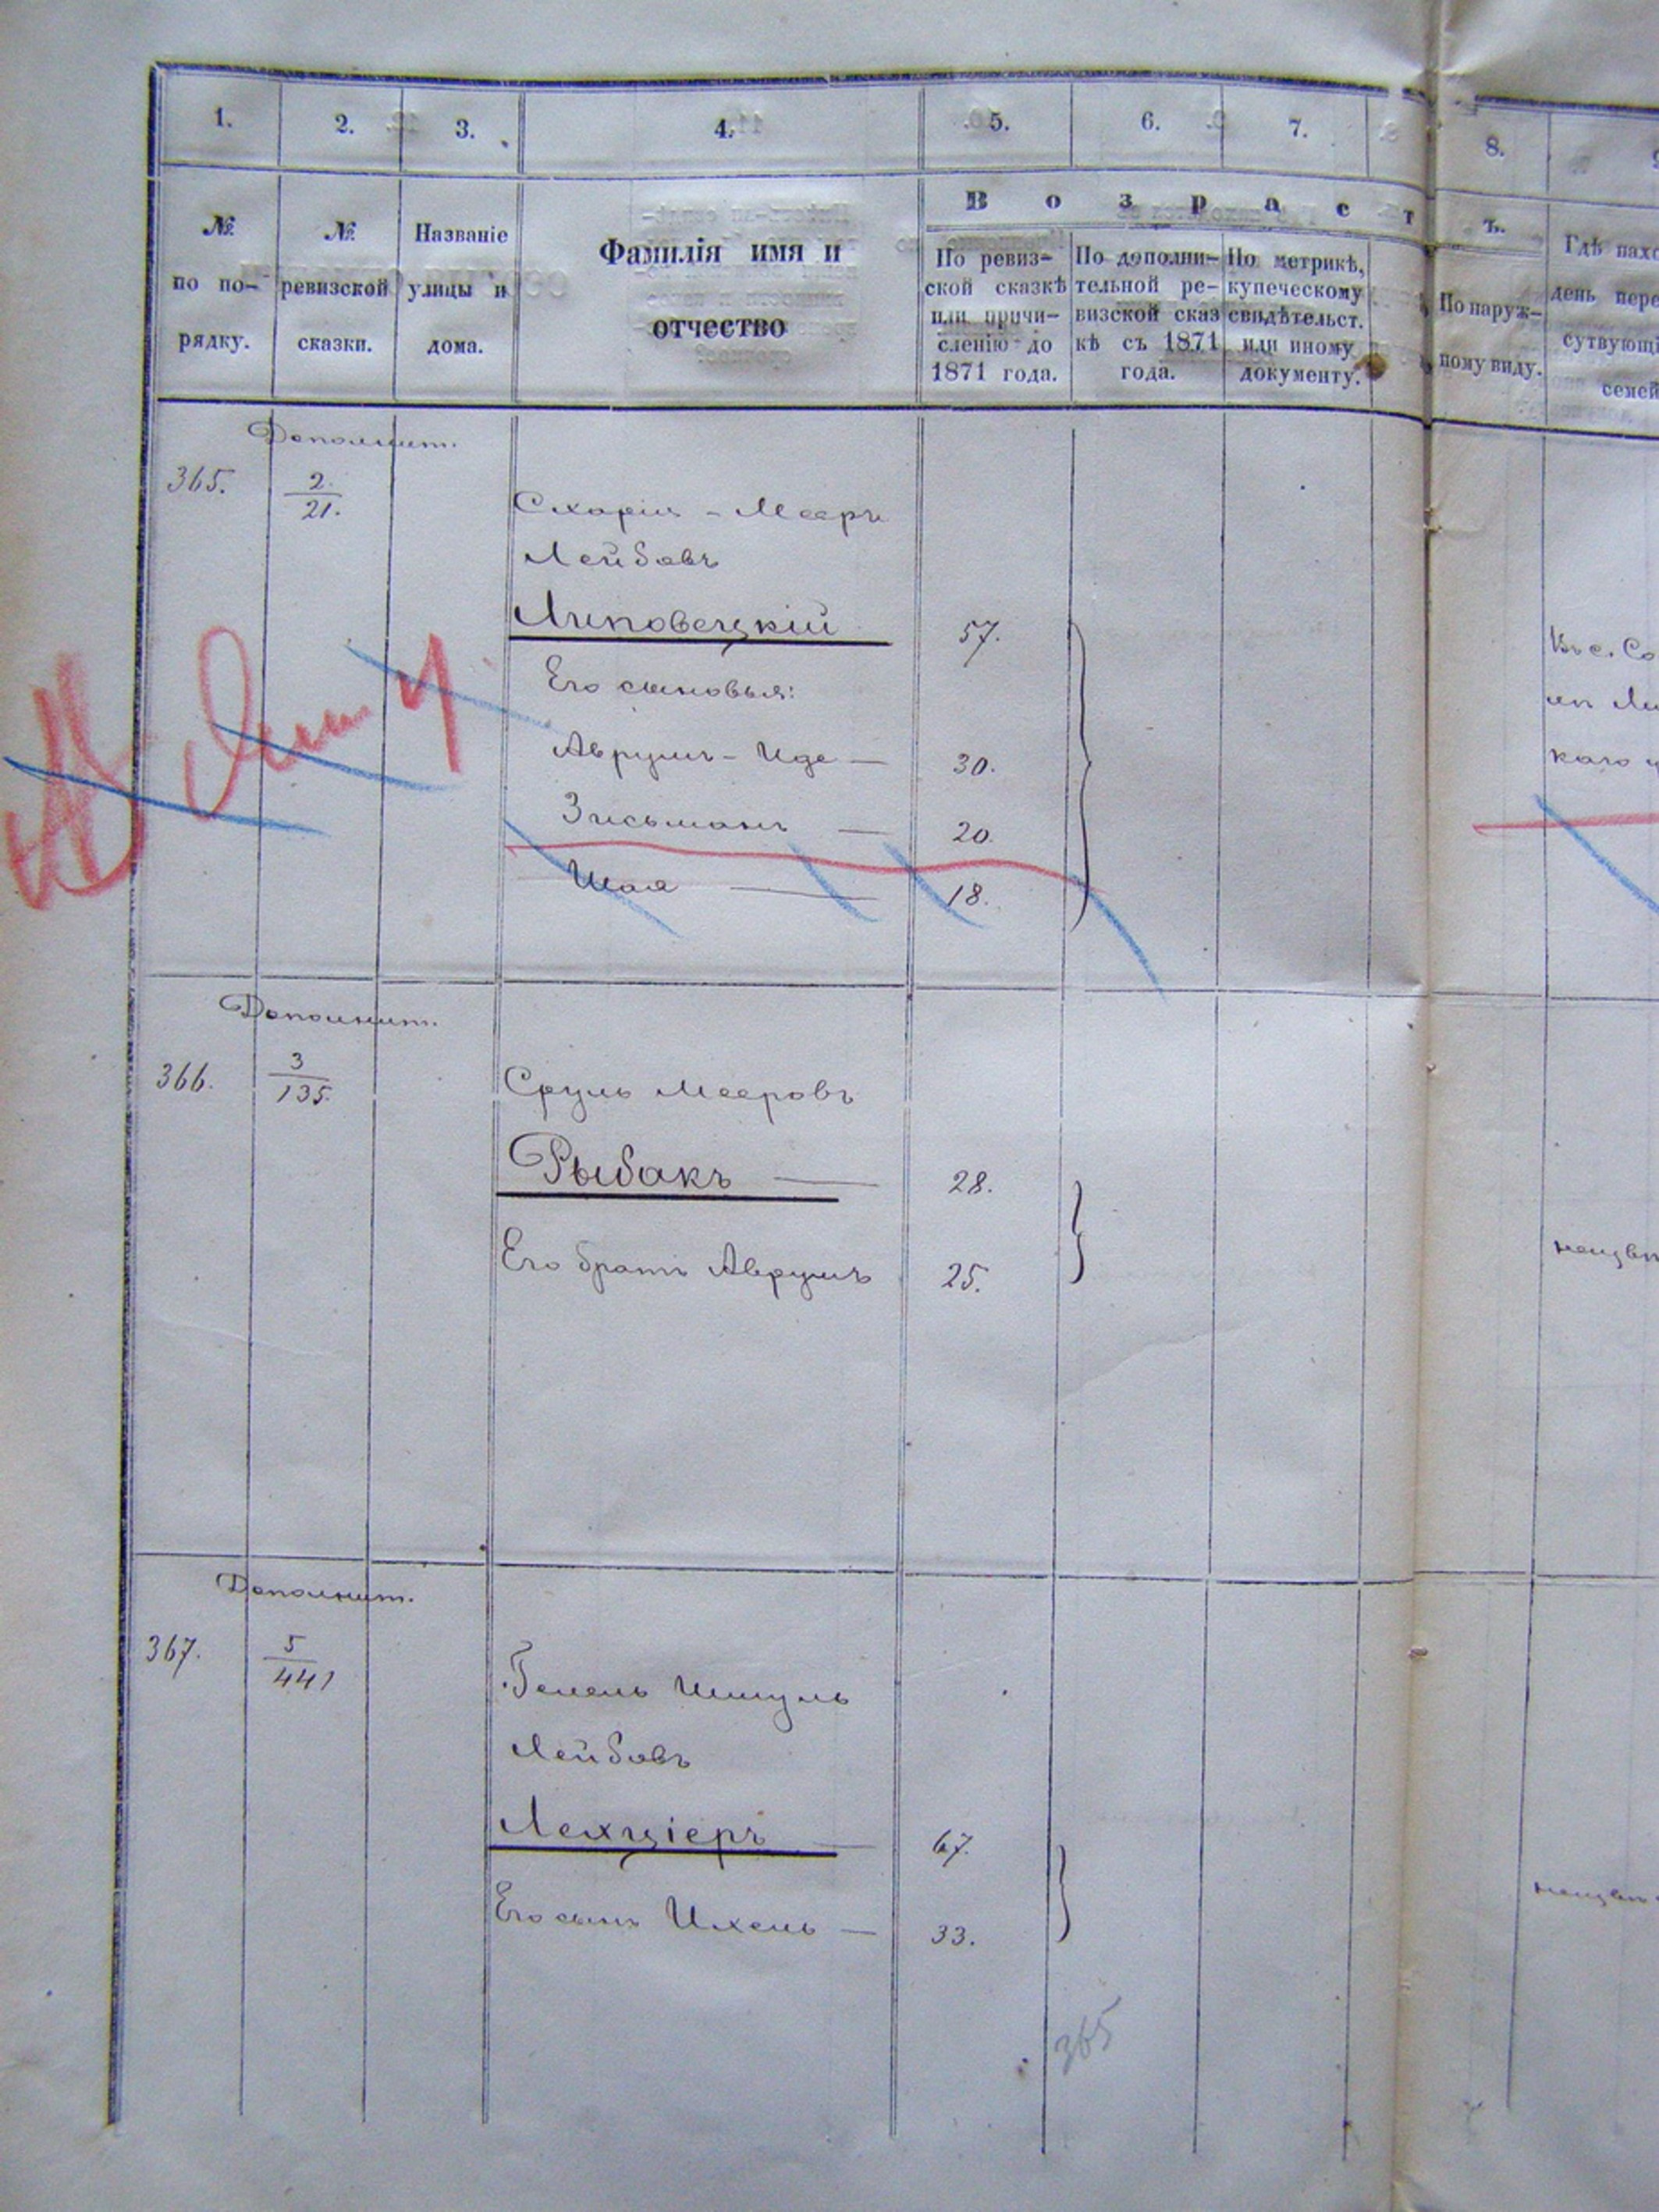 1. 2. 3. 4. 5. 6. 7. 8.
№ по по-рядку.
№ ревизской сказки.
Названіе улицы и дома.
Фамилія имя и отчество
Возрастъ.
По ревиз-
ской сказкѣ
или причи-
сленію до
1871 года.
По дополни-
тельной ре-
визской сказ
кѣ съ 1871
года.
По метрикѣ,
купеческому
свидѣтельст.
или иному
документу.
По наруж-
ному виду.
Гдѣ
день
семей
Дополнит.
365. 2/21.
Схарія - Мееръ
Лейбовъ
Липовецкій 57.
Его сыновья:
Аврумъ - Иде — 30.
Зисьманъ — 20.
Шая — 18.
Дополнит.
366. 3/135.
Сруль Мееровъ
Рыбакъ — 28.
Его братъ Аврумъ 25.
Дополнит.
367. 5/441
Шмуль
Лейбовъ
Лехціеръ — 67.
Его сынъ Ихель — 33.
365